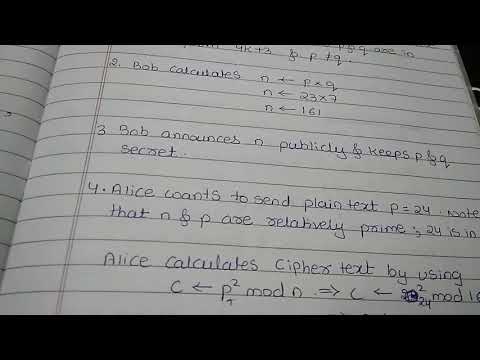 p&q are in
4k+3 & p≠q.
2. Bob calculates n ← p×q
n ← 23×7
n ← 161
3. Bob announces n publicly & keeps p&q
secret.
4. Alice wants to send plain text p=24. Note
that n & p are relatively prime; 24 is in
Alice calculates cipher text by using
C ← p² mod n ⇒ C ← 24² mod